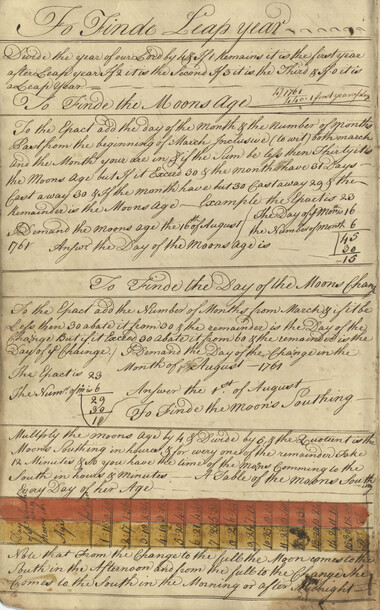 To Finde Leap year
Divide the year of our Lord by 4 & If 1 remains it is the first year
after Leap year If 2 it is the Second If 3 it is the Third & If 0 it is
a Leap Year
4)1761
440:1 first year after
To Finde the Moons Age
To the Epact add the day of the Month & the Number of Months
Past from the beginning of March Inclusive (to wit) both march
and the Month your are in & if the Sum be less then Thirty it is
the Moons Age but If it Exceed 30 & the month have 31 Days
Cast away 30 & If the month have but 30 Cast away 29 & the
Remainder is the Moons Age – Example the Epact is 23
I Demand the moons age the 16th of August
The Day of Month 16
the Number of Month 6
1761 Answr the Day of the Moons age is
45
30
15
To Finde the Day of the Moons Chang
To the Epact add the Number of Months from March & if it be
Less then 30 abate it from 30 & the remainder is the Day of the
Change But if it Exceed 30 abate it from 60 & the remainder is the
Day of ye Change / I Demand the Day of the Change in the
Month of August – 1761
The Epact is 23
The Numr of m is 6
Answer the 1st of August
29
30
To Finde the Moon's Southing
Multiply the Moons Age by 4 & Divide by 5 & the Quotient is the
Moons Southing in hours & for every one of the remainder Take
12 Minutes & So you have the time of the Moons Comming to the
South in hours & Minutes – A Table of the Moons South
Every Day of her Age
Age
Note that From the Change to the full the Moon comes to the
South in the Afternoon and from the full to the Change She
Comes to the South in the Morning or after Midnight